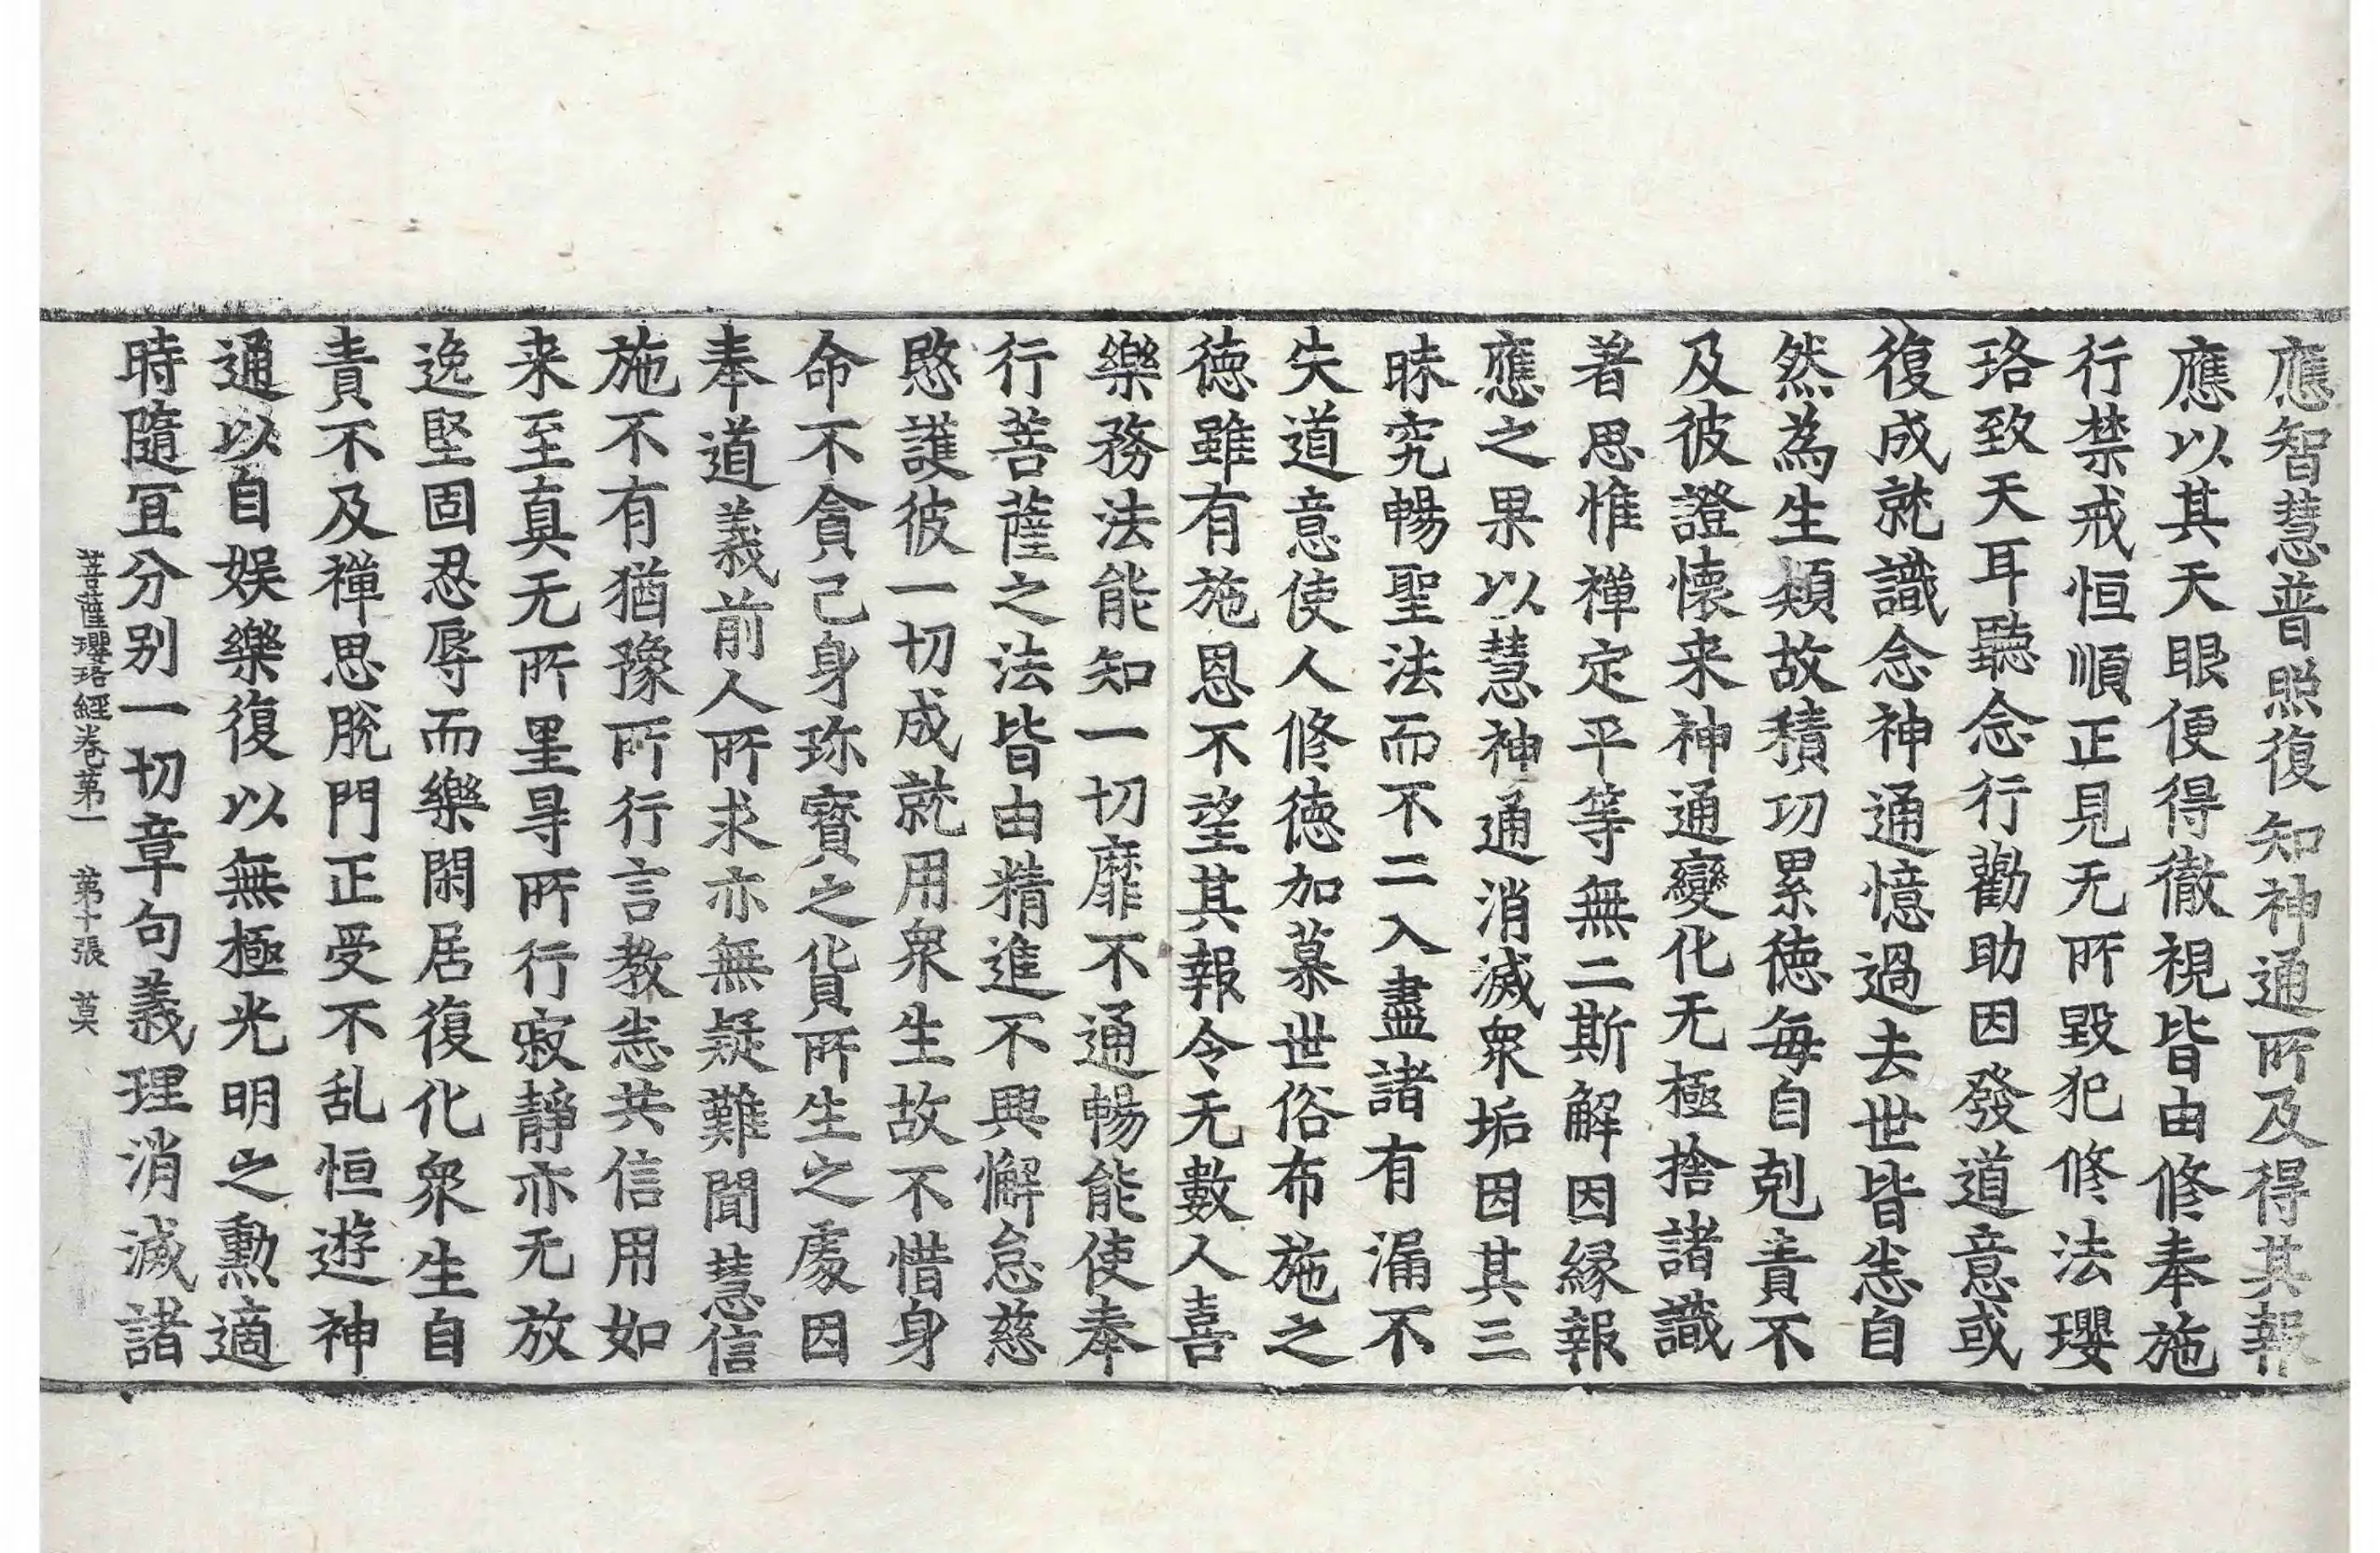 應智慧普照復知神通所及得其報
應以其天眼便得徹視皆由修奉施
行禁戒恒順正見无所毀犯修法瓔
珞致天耳聽念行勸助因發道意或
復成就識念神通憶過去世皆悉自
然為生類故積功累德每自剋責不
及彼證懷来神通變化无極捨諸識
著思惟禪定平等無二斯解因縁報
應之果以慧神通消滅衆垢因其三
昧究暢聖法而不二入盡諸有漏不
失道意使人修德加慕世俗布施之
德雖有施恩不望其報令无數人喜
樂務法能知一切靡不通暢能使奉
行菩薩之法皆由精進不興懈怠慈
愍護彼一切成就用衆生故不惜身
命不貪己身珎寶之貨所生之處因
奉道義前人所求亦無疑難聞慧信
施不有猶豫所行言教悉共信用如
来至真无所罣㝵所行寂靜亦无放
逸堅固忍辱而樂閑居復化衆生自
責不及禪思脫門正受不乱恒遊神
通以自娛樂復以無極光明之勳適
時隨冝分别一切章句義理消滅諸
菩薩瓔珞經卷第一 第十張 莫